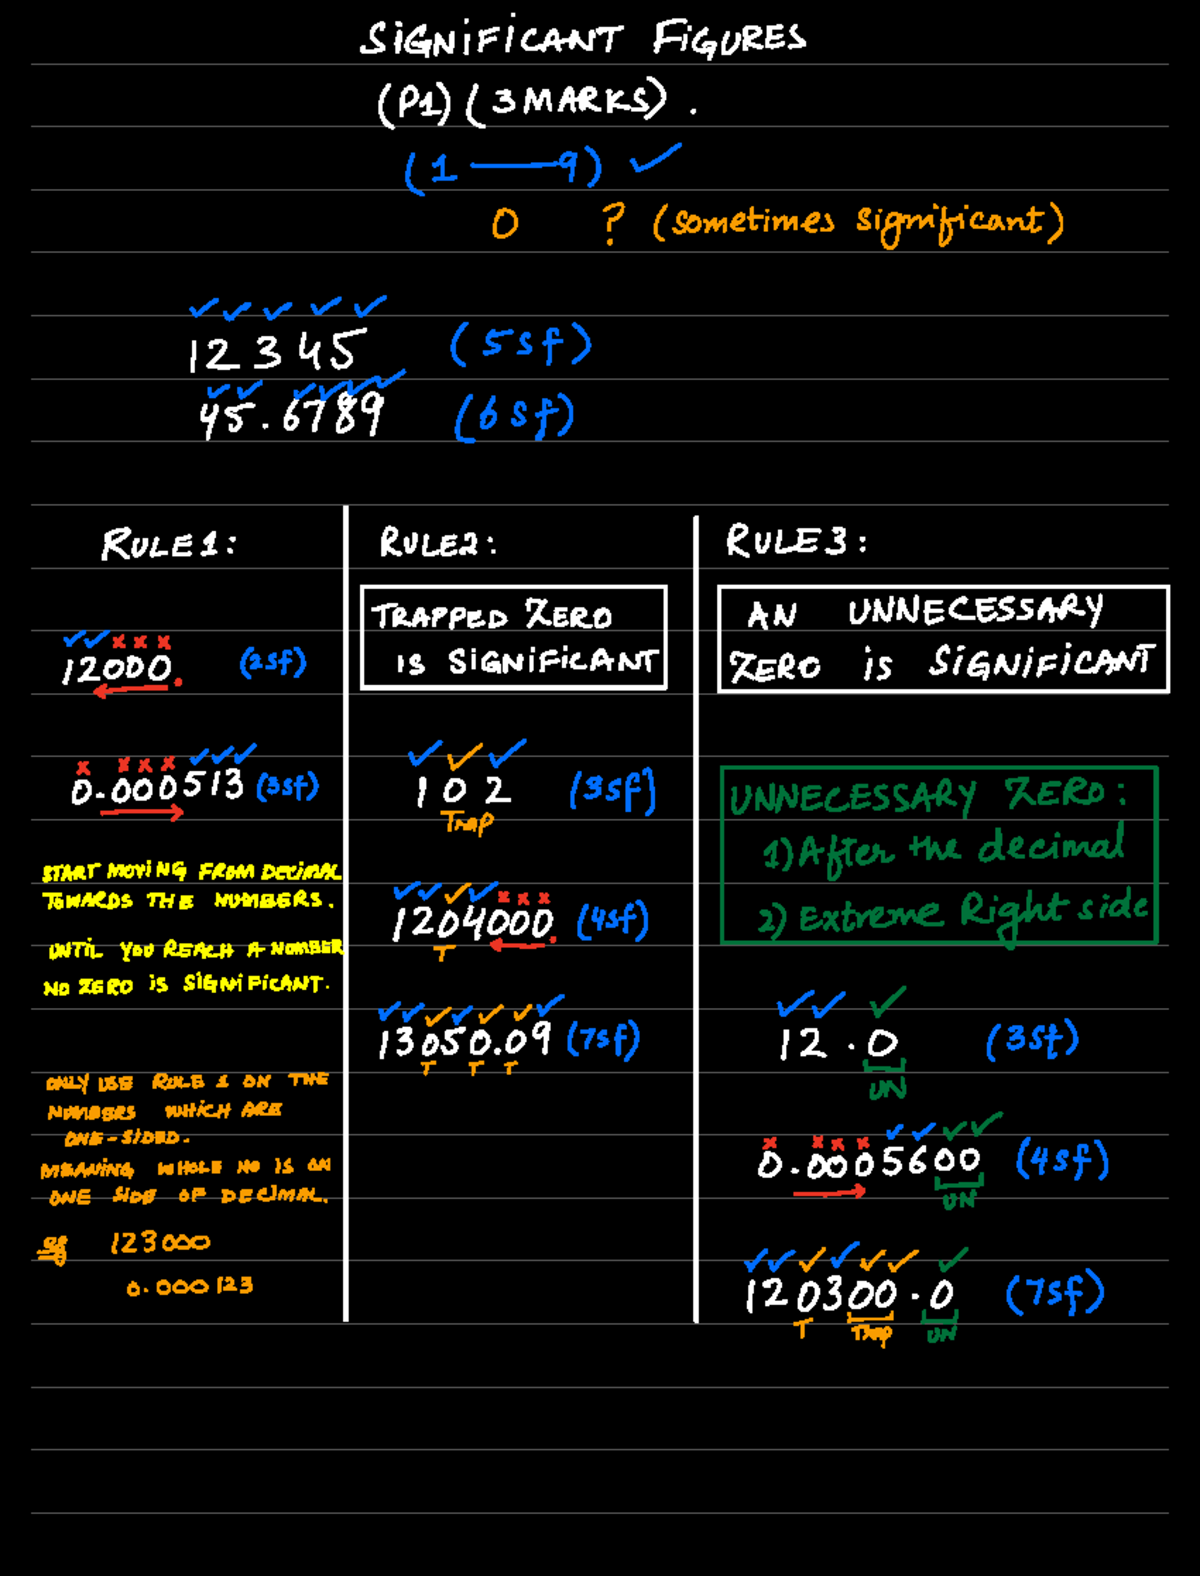 SIGNIFICANT FIGURES
(P1) (3 MARKS).
(1 — 9) ✓
0 ? (sometimes significant)
✓ ✓ ✓ ✓ ✓
12345 (5sf)
✓ ✓ ✓ ✓ ✓ ✓
45.6789 (6sf)
RULE 1:
✓ ✓ x x x
12000. (2sf)
x x x x ✓ ✓ ✓
0.000513 (3sf)
START MOVING FROM DECIMAL
TOWARDS THE NUMBERS.
UNTIL YOU REACH A NUMBER
NO ZERO IS SIGNIFICANT.
ONLY USE RULE 1 ON THE
NUMBERS WHICH ARE
ONE-SIDED.
MEANING WHOLE NO IS ON
ONE SIDE OF DECIMAL.
eg 123000
0.000123
RULE2:
TRAPPED ZERO
IS SIGNIFICANT
✓ ✓ ✓
102 (3sf)
Trap
✓ ✓ ✓ ✓ x x x
1204000. (4sf)
T
✓ ✓ ✓ ✓ ✓ ✓ ✓
13050.09 (7sf)
T T T
RULE3:
AN UNNECESSARY
ZERO IS SIGNIFICANT
UNNECESSARY ZERO:
1) After the decimal
2) Extreme Right side
✓ ✓ ✓
12.0 (3sf)
UN
x x x x ✓ ✓ ✓ ✓
0.0005600 (4sf)
UN
✓ ✓ ✓ ✓ ✓ ✓ ✓
120300.0 (7sf)
T Trap UN